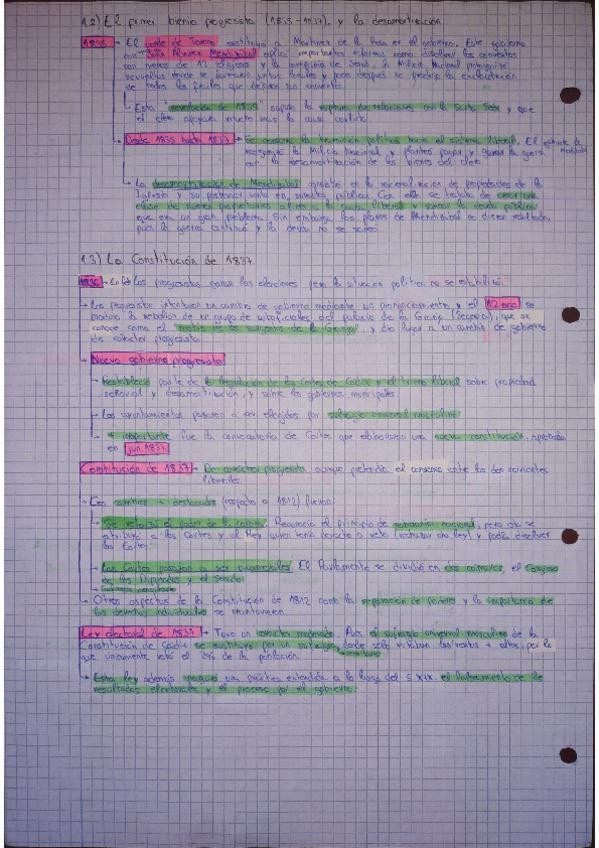 1.2) El primer bienio progresista (1835-1837) y la desamortización
1835 El conde de Toreno sustituyó a Martínez de la Rosa en el gobierno. Este gobierno
con Juan Álvarez Mendizábal aplicó importantes reformas como disolver los conventos
con menos de 12 religiosos y la Compañía de Jesús, la Milicia Nacional protagonizó
revueltas donde se formaron juntas locales y poco después se produjo la exclaustración
de todos los frailes que dejaron sus conventos.
Esta "revolución de 1835" supuso la ruptura de relaciones con la Santa Sede y que
el clero apoyara mucho más la causa carlista.
Desde 1835 hasta 1837 Se consuma la transición política hacia el sistema liberal. El
reorganizó la Milicia Nacional y planteó pagar y ganar la guerra
con la desamortización de los bienes del clero.
La desamortización de Mendizábal consistió en la nacionalización de propiedades de la
Iglesia y su posterior venta en subasta pública. Con ello se trataba de crear una
clase de nuevos propietarios afines a la causa liberal y sanear la deuda pública
que era un gran problema. Sin embargo, los planes de Mendizábal no dieron resultados
pues la guerra continuó y la deuda no se saneó.
1.3) La Constitución de 1837.
1836 los progresistas ganan las elecciones pero la situación política no se estabilizó.
Los progresistas intentaron un cambio de gobierno mediante un pronunciamiento, y el 12 ago se
produjo la rebelión de un grupo de suboficiales del palacio de La Granja (Segovia), que se
conoce como el "motín de los sargentos de La Granja", y dio lugar a un cambio de gobierno
de carácter progresista.
Nuevo gobierno progresista
Restableció parte de la legislación de las Cortes de Cádiz y el trienio liberal sobre propiedad
señorial y desamortización, y sobre los gobiernos municipales.
Los ayuntamientos pasaron a ser elegidos por sufragio universal masculino.
+ importante fue la convocatoria de Cortes que elaboraron una nueva constitución, aprobada
en jun 1837
Constitución de 1837 De carácter progresista aunque pretendía el consenso entre las dos corrientes
liberales.
Los cambios + destacados (respecto a 1812) fueron:
Se reforzó el poder de la corona. Reconocía el principio de soberanía nacional, pero ola se
atribuyó a las Cortes y al Rey quien tenía derecho a veto (rechazar una ley) y podía disolver
las Cortes.
Las Cortes pasaron a ser bicamerales. El Parlamento se dividió en dos cámaras, el Congreso
de los Diputados y el Senado.
Otros aspectos de la Constitución de 1812 como la separación de poderes y la importancia de
los derechos individuales se mantuvieron.
Ley electoral de 1837 Tuvo un carácter moderado. Pues el sufragio universal masculino de la
Constitución de Cádiz se sustituyó por un sufragio donde solo votaban las rentas + altas, por lo
que únicamente votó el 2% de la población.
Esta ley además inauguró una práctica extendida a lo largo del s XIX: el falseamiento de los
resultados electorales y el proceso por el gobierno.